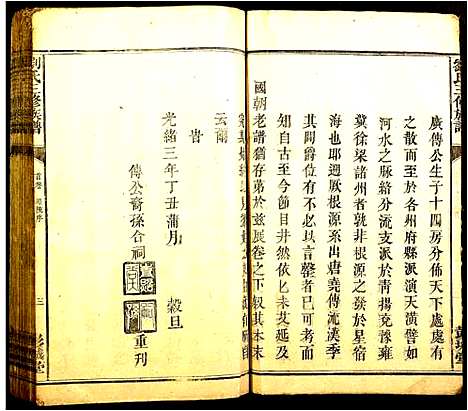 劉氏三修族譜
廣傳公生子十四房分佈天下處處有
之散而至於各州府縣派演天潢譬如
河水之脈絡分流支派於靑揚兗豫雍
冀徐梁諸州者孰非根源之發於星宿
海也耶廻厥根源系出唐堯傳流漢季
其間爵位有不可以言罄者已
知自古至今所昭然依匕未艾也降及
國朝老譜猶存苐於玆展卷之下叙其本末
云爾
旹
光緒三年丁丑蒲月 穀旦
傳公裔孫合祠 重刊
劉氏三修族譜
首卷
三
彭城堂
彭城堂